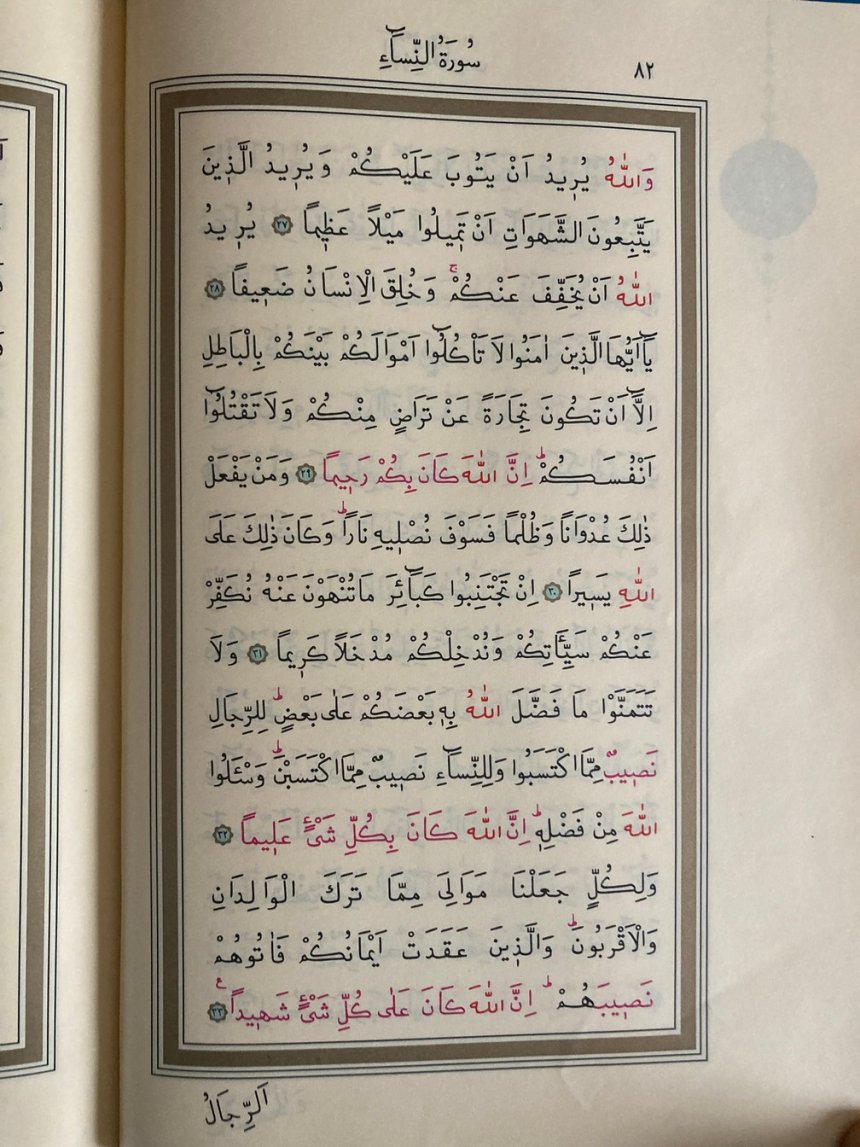 سُورَةُ النِّسَٓاءِ
٨٢
وَاللّٰهُ يُر۪يدُ اَنْ يَتُوبَ عَلَيْكُمْ وَيُر۪يدُ الَّذ۪ينَ
يَتَّبِعُونَ الشَّهَوَاتِ اَنْ تَم۪يلُوا مَيْلاً عَظ۪يماً ﴿٢٧﴾ يُر۪يدُ
اللّٰهُ اَنْ يُخَفِّفَ عَنْكُمْۚ وَخُلِقَ الْاِنْسَانُ ضَع۪يفاً ﴿٢٨﴾
يَٓا اَيُّهَا الَّذ۪ينَ اٰمَنُوا لَا تَأْكُلُٓوا اَمْوَالَكُمْ بَيْنَكُمْ بِالْبَاطِلِ
اِلَّٓا اَنْ تَكُونَ تِجَارَةً عَنْ تَرَاضٍ مِنْكُمْ وَلَا تَقْتُلُٓوا
اَنْفُسَكُمْۜ اِنَّ اللّٰهَ كَانَ بِكُمْ رَح۪يماً ﴿٢٩﴾ وَمَنْ يَفْعَلْ
ذٰلِكَ عُدْوَاناً وَظُلْماً فَسَوْفَ نُصْل۪يهِ نَاراًۜ وَكَانَ ذٰلِكَ عَلَى
اللّٰهِ يَس۪يراً ﴿٣٠﴾ اِنْ تَجْتَنِبُوا كَبَٓائِرَ مَا تُنْهَوْنَ عَنْهُ نُكَفِّرْ
عَنْكُمْ سَيِّـَٔاتِكُمْ وَنُدْخِلْكُمْ مُدْخَلاً كَر۪يماً ﴿٣١﴾ وَلَا
تَتَمَنَّوْا مَا فَضَّلَ اللّٰهُ بِه۪ بَعْضَكُمْ عَلٰى بَعْضٍۜ لِلرِّجَالِ
نَص۪يبٌ مِمَّا اكْتَسَبُوا وَلِلنِّسَٓاءِ نَص۪يبٌ مِمَّا اكْتَسَبْنَۜ وَسْـَٔلُوا
اللّٰهَ مِنْ فَضْلِه۪ۜ اِنَّ اللّٰهَ كَانَ بِكُلِّ شَيْءٍ عَل۪يماً ﴿٣٢﴾
وَلِكُلٍّ جَعَلْنَا مَوَالِيَ مِمَّا تَرَكَ الْوَالِدَانِ
وَالْاَقْرَبُونَۜ وَالَّذ۪ينَ عَقَدَتْ اَيْمَانُكُمْ فَاٰتُوهُمْ
نَص۪يبَهُمْۜ اِنَّ اللّٰهَ كَانَ عَلٰى كُلِّ شَيْءٍ شَه۪يداً۟ ﴿٣٣﴾
اَلرِّجَالُ